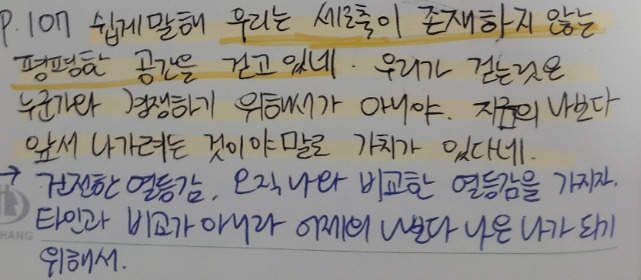 P.107 쉽게말해 우리는 세로축이 존재하지 않는
평평한 공간을 걷고 있네. 우리가 걷는것은
누군가와 경쟁하기 위해서가 아니야. 지금의 나보다
앞서 나가려는 것이야 말로 가치가 있다네.
→ 건전한 열등감, 오직 나와 비교한 열등감을 가지자.
타인과 비교가 아니라 어제의 나보다 나은 나가 되기
위해서.
HANG